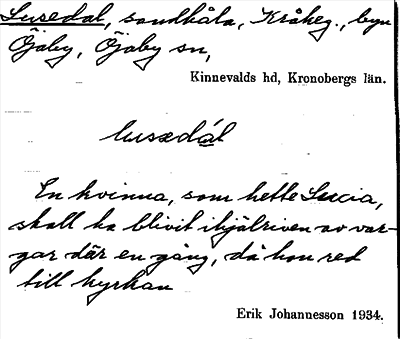 Lusedal, sandhåla, Kråkeg., byn
Öjaby, Öjaby sn,
Kinnevalds hd, Kronobergs län.
lusædál
En kvinna, som hette Lucia,
skall ha blivit ihjälriven av var-
gar där en gång, då hon red
till kyrkan
Erik Johannesson 1934.